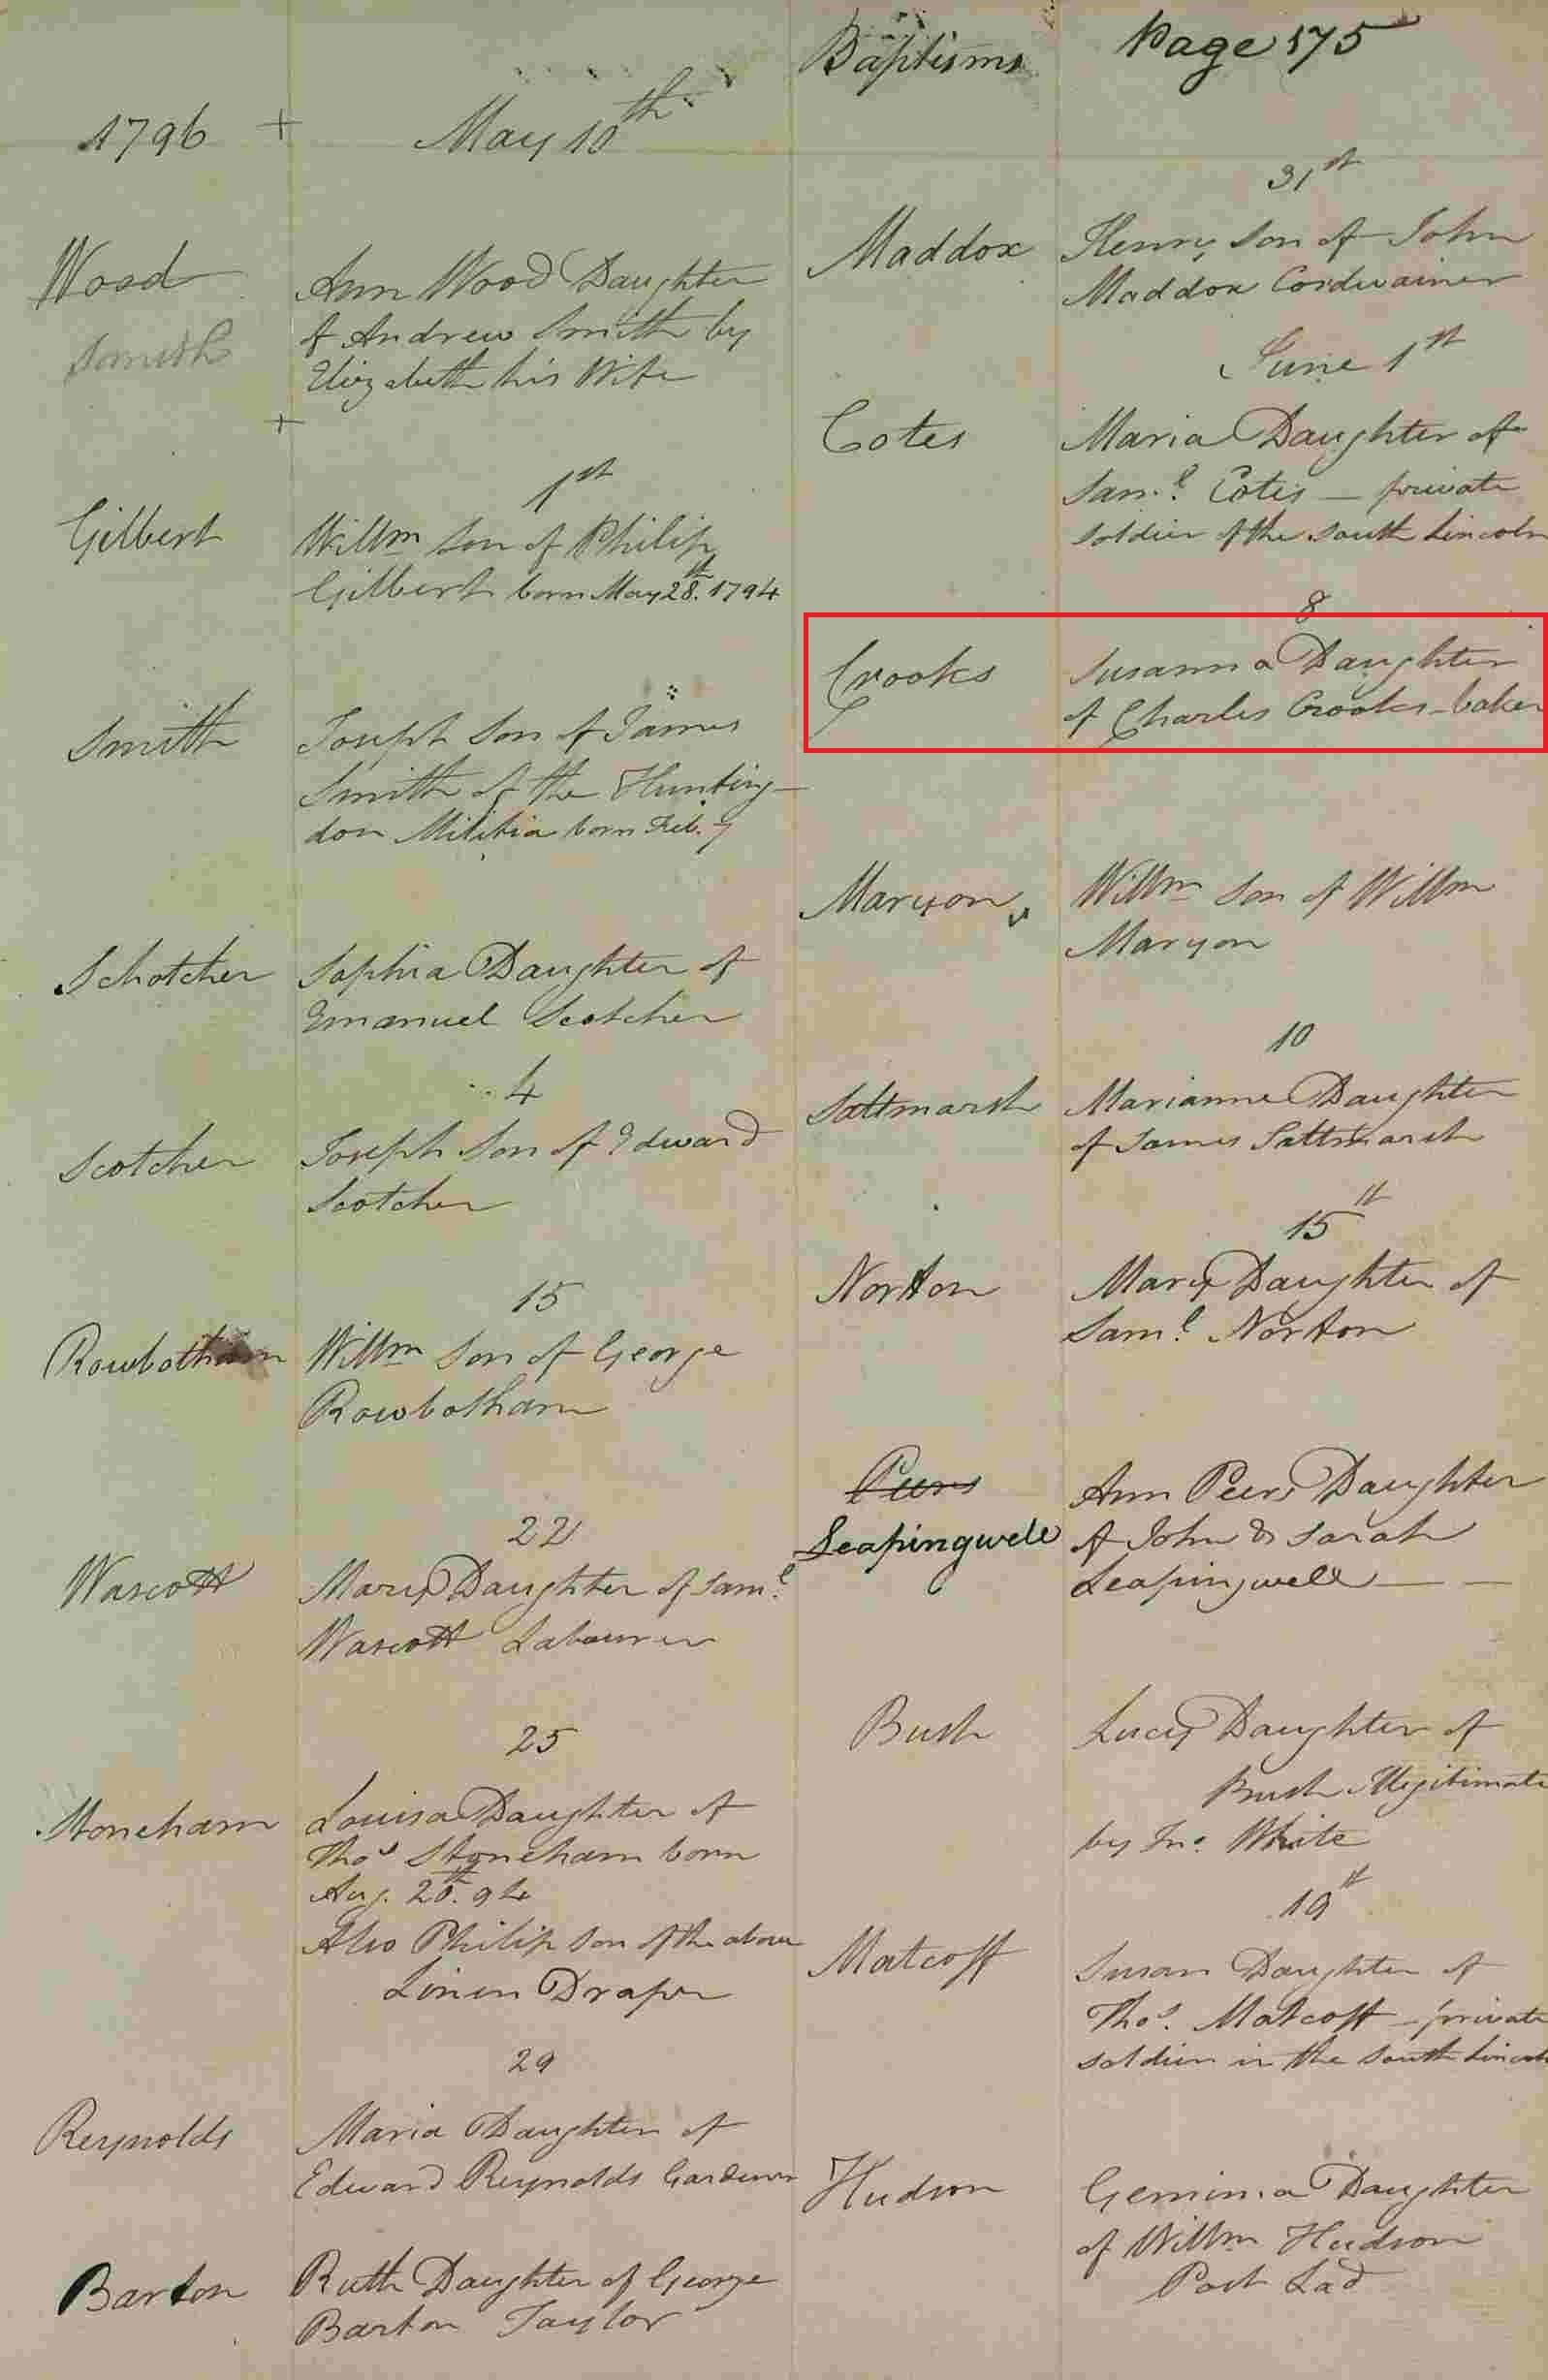 Baptisms Page 175
1796 + May 10th
Wood Ann Wood Daughter
Smith of Andrew Smith by
Elizabeth his Wife
+
1st
Gilbert Willm son of Philip
Gilbert born May 28th. 1794
Smith Joseph Son of James
Smith of the Hunting-
don Militia born Feb. 7
Schotcher Sophia Daughter of
Emanuel Scotcher
4
Scotcher Joseph Son of Edward
Scotcher
15
Rowbotham Willm Son of George
Rowbotham
22
Wascott Mary Daughter of Saml
Wascott Labourer
25
Stoneham Louisa Daughter of
Thos Stoneham born
Aug. 20th. 94
Also Philip son of the above
Linen Draper
29
Reynolds Maria Daughter of
Edward Reynolds Gardener
Barton Ruth Daughter of George
Barton Taylor
31st
Maddox Henry son of John
Maddox Cordwainer
June 1st
Cotes Maria Daughter of
Saml. Cotes — private
soldier of the South Lincoln
8
Crooks Susanna Daughter
of Charles Crooks - baker
Maryon Willm Son of Willm
Maryon
10
Saltmarsh Marianne Daughter
of James Saltmarsh
15th
Norton Mary Daughter of
Saml. Norton
Peers Ann Peers Daughter
Leapingwell of John & Sarah
Leapingwell — —
Bush Lucy Daughter of
Bush Illegitimate
by Jno. White
19th
Matcoff Susan Daughter of
Thos. Matcoff - private
soldier in the South Lincoln
Hudson Gemima Daughter
of Willm Hudson
Post Lad